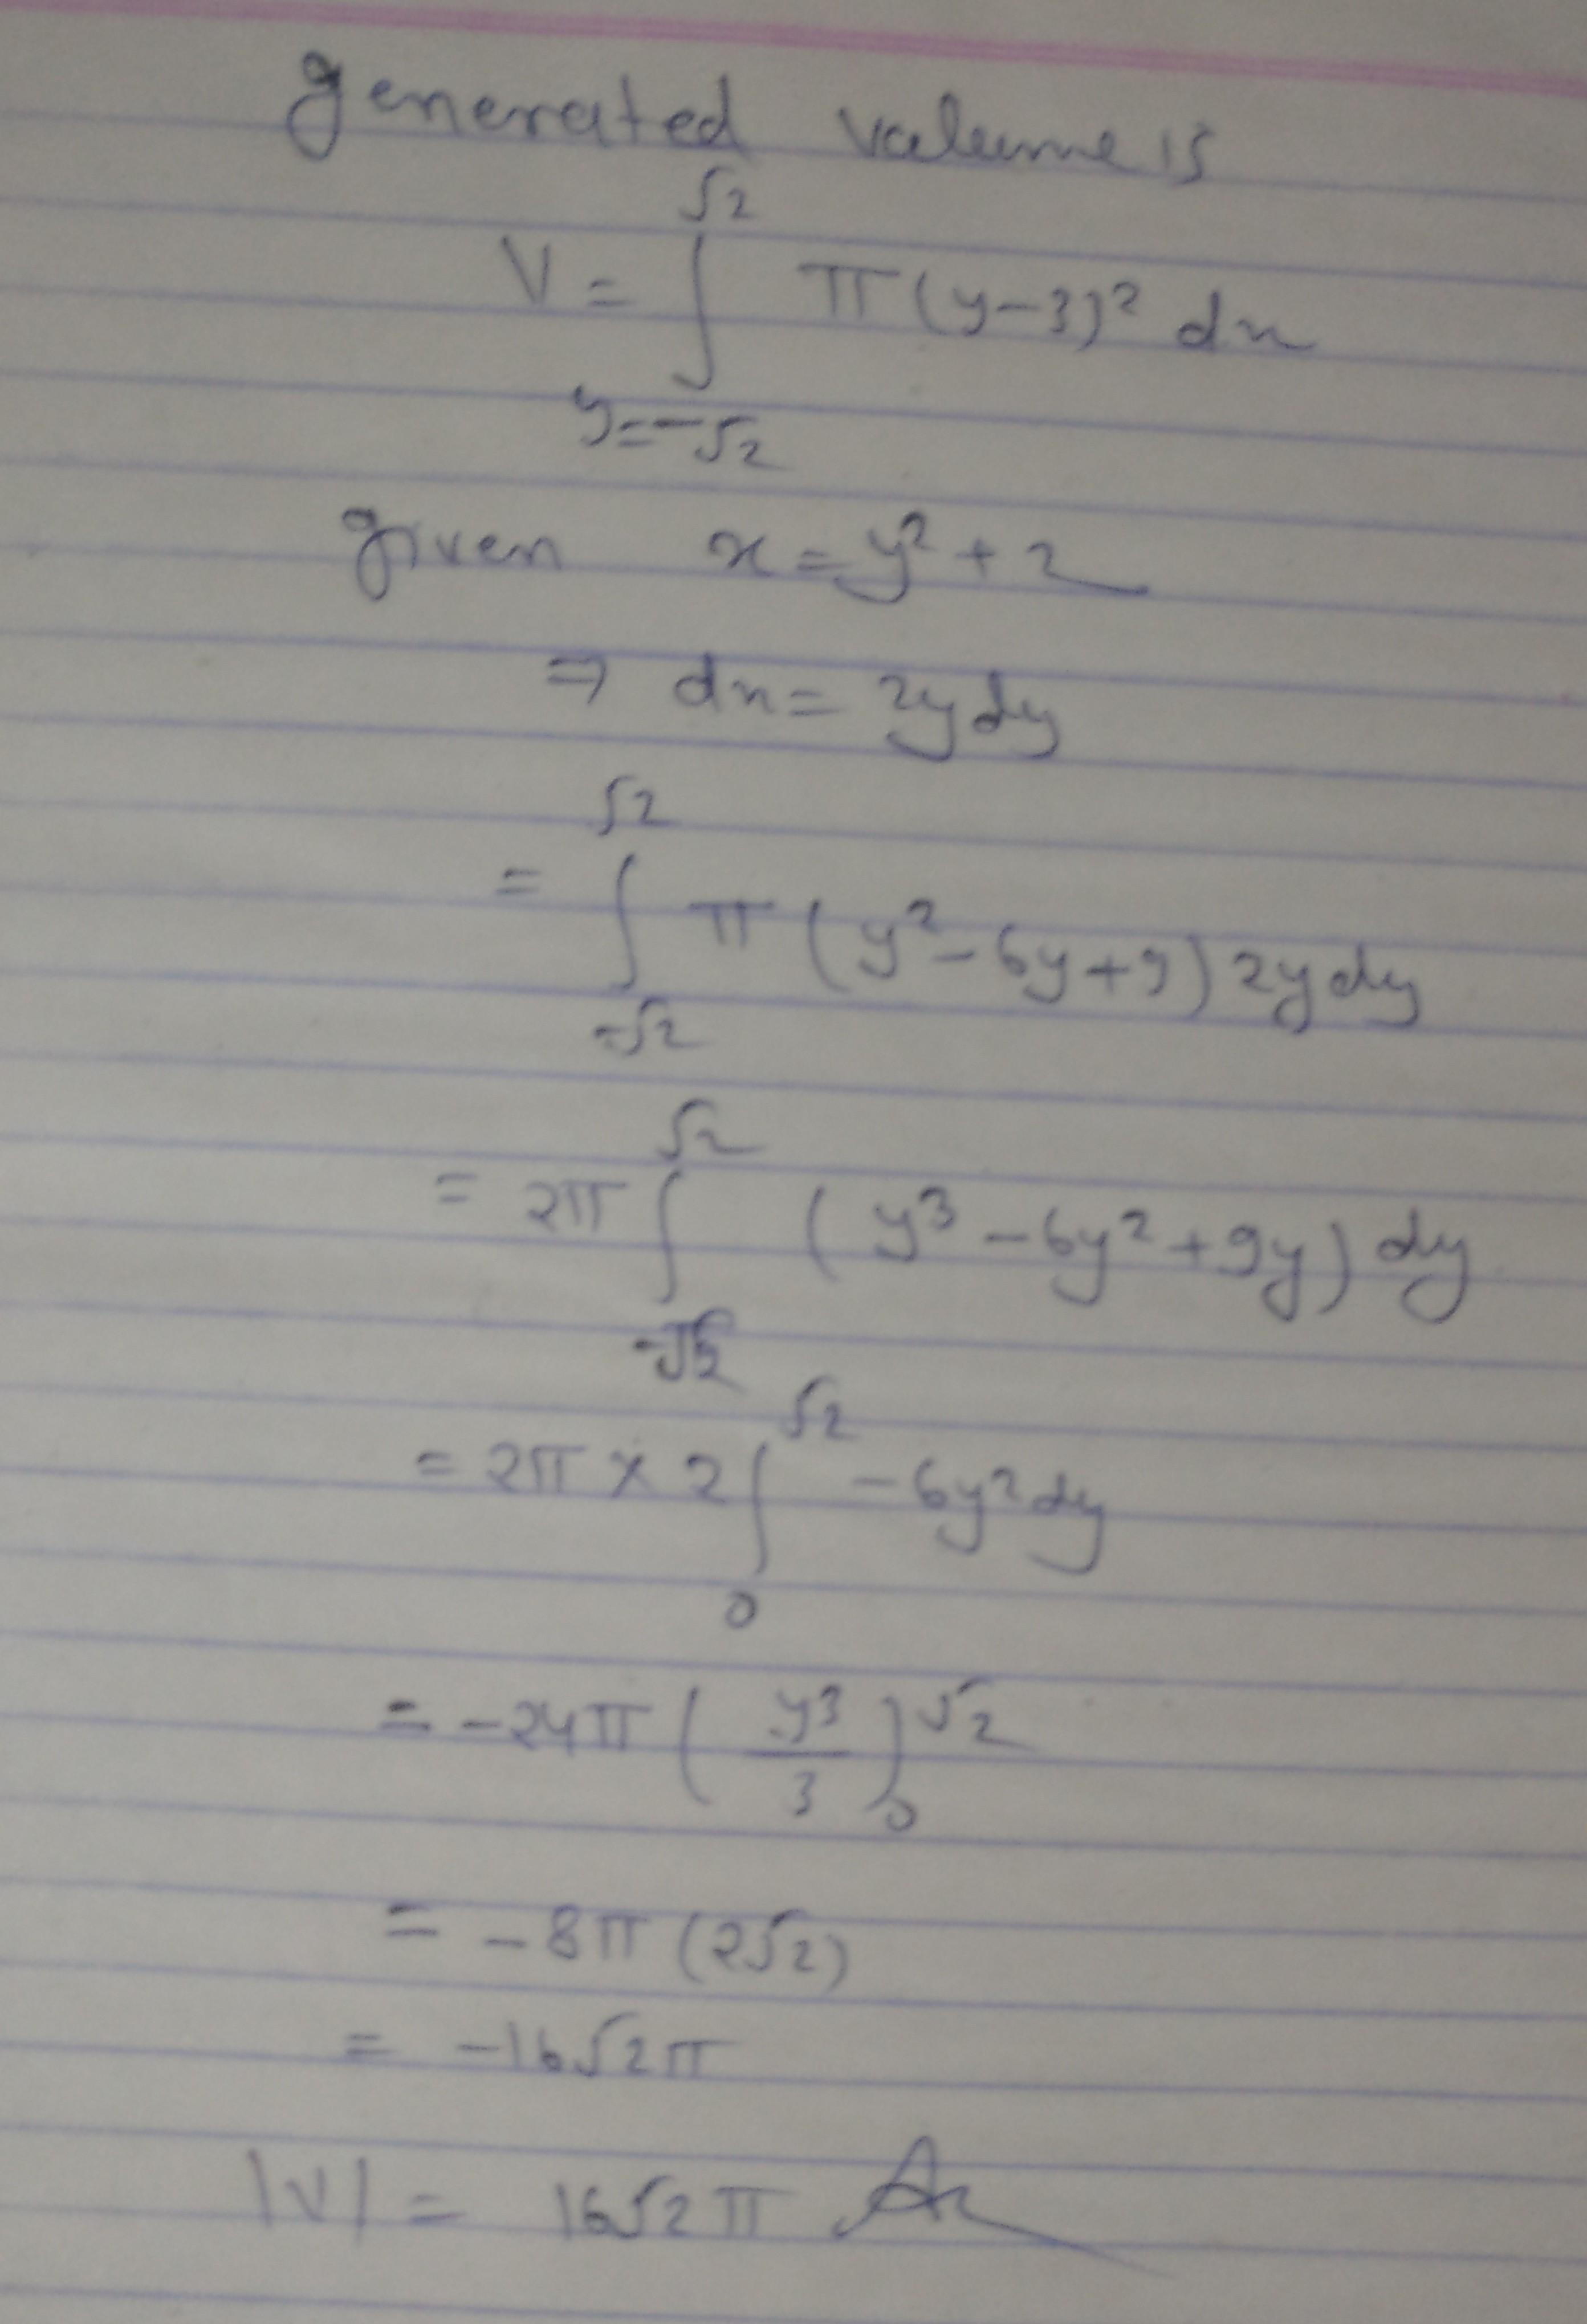 generated volume is
V = ∫_{y=-√2}^{√2} π(y-3)² dx
given x = y² + 2
⇒ dx = 2y dy
= ∫_{-√2}^{√2} π (y² - 6y + 9) 2y dy
= 2π ∫_{-√2}^{√2} (y³ - 6y² + 9y) dy
= 2π × 2 ∫_{0}^{√2} - 6y² dy
= -24π (y³/3)_{0}^{√2}
= -8π (2√2)
= -16√2π
|V| = 16√2π Ans